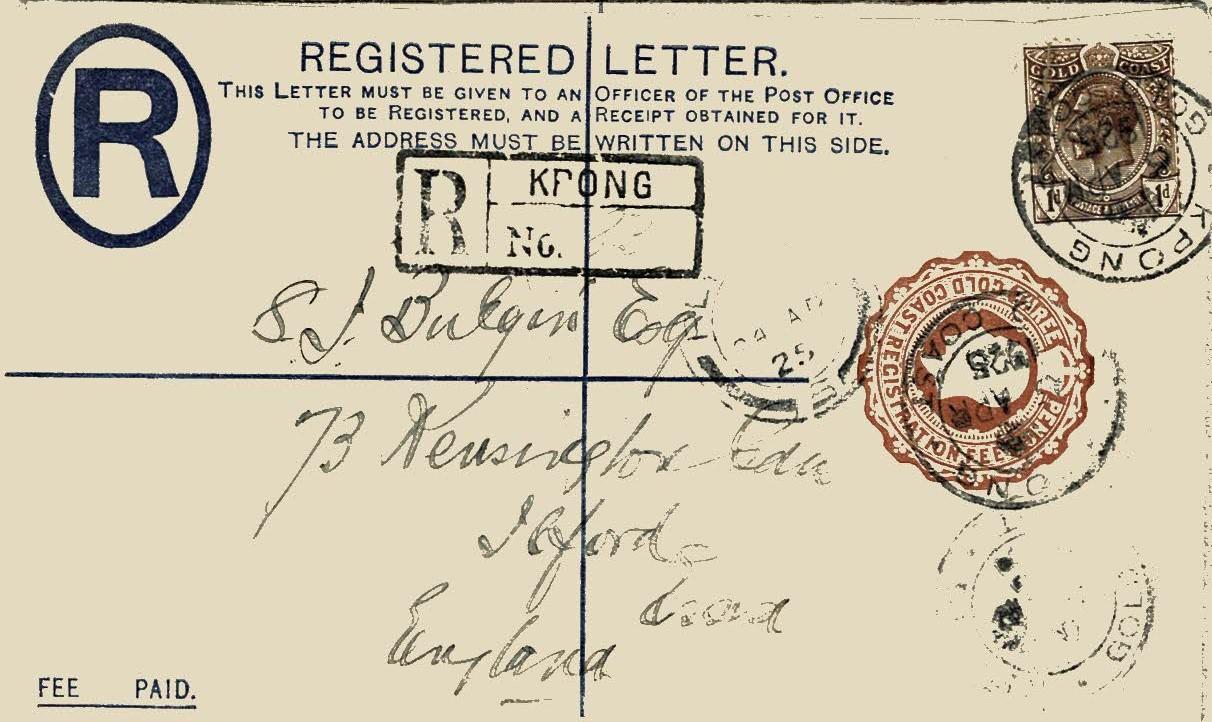 R
REGISTERED LETTER.
THIS LETTER MUST BE GIVEN TO AN OFFICER OF THE POST OFFICE
TO BE REGISTERED, AND A RECEIPT OBTAINED FOR IT.
THE ADDRESS MUST BE WRITTEN ON THIS SIDE.
GOLD COAST
1d 1d
KPONG
R KPONG
No.
S. J. Bulgin Esq
25
THREE PENCE
GOLD COAST REGISTRATION FEE
COAST
APR
25
73 Kensington Gdns
Ilford
England
GOLD
FEE PAID.